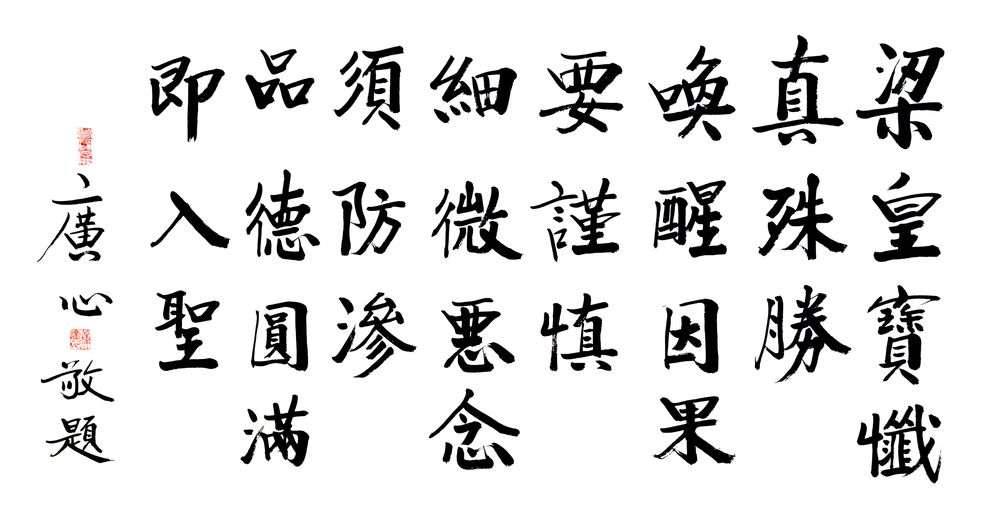 梁皇寶懺
真殊勝
喚醒因果
要謹慎
細微惡念
須防滲
品德圓滿
即入聖
廣心敬題